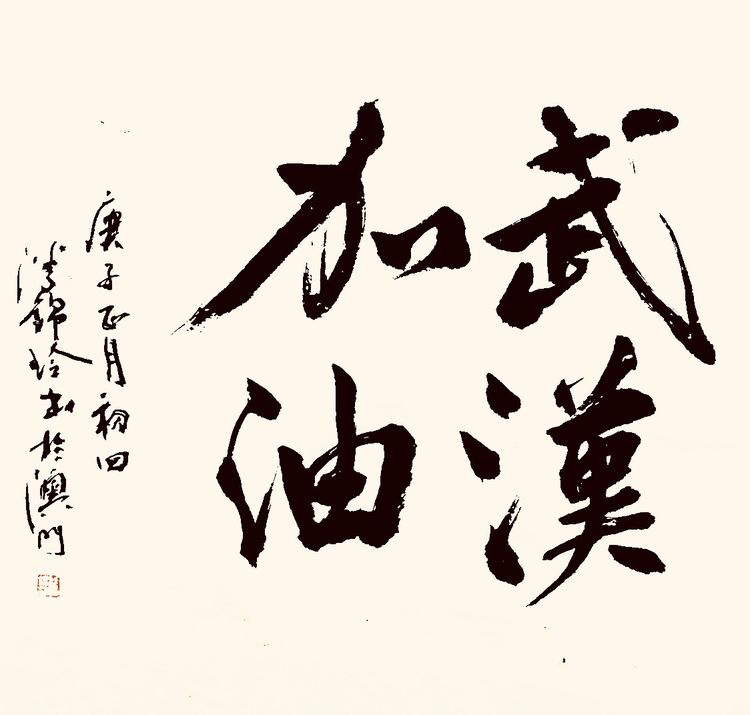 武漢
加油
庚子正月初四
錦玲書於澳門